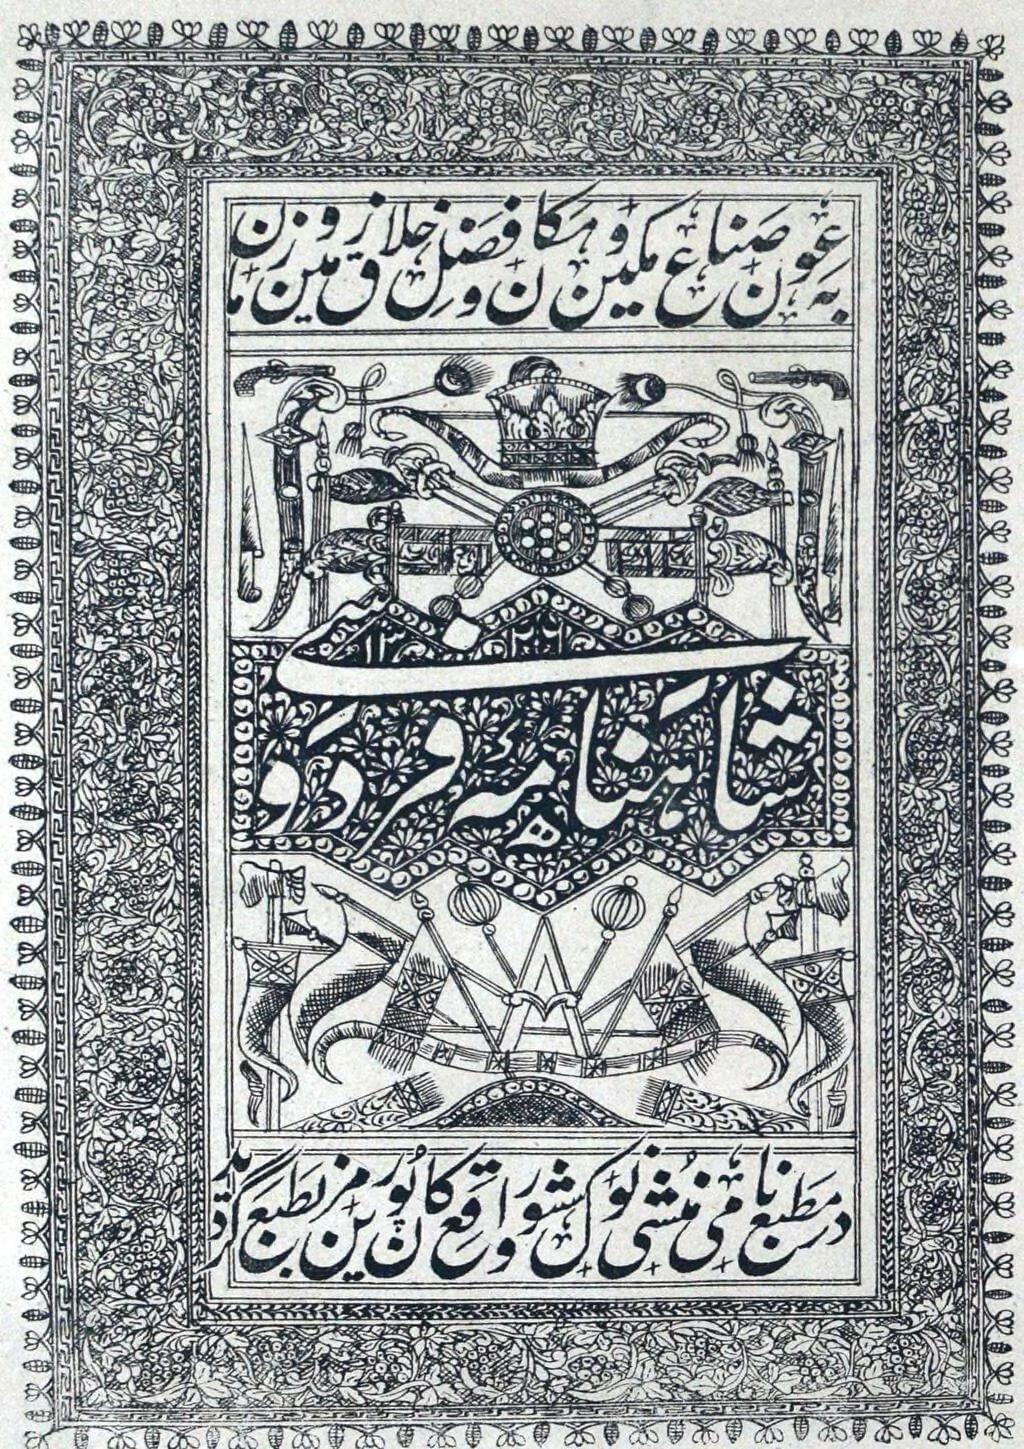 به عون صناع مکین و مکان و فضل خلاق زمین و زمن
۱۳۲۶
شاهنامهٔ فردوسی
در مطبع نامی منشی نول کشور واقع کانپور مزین بطبع گردید